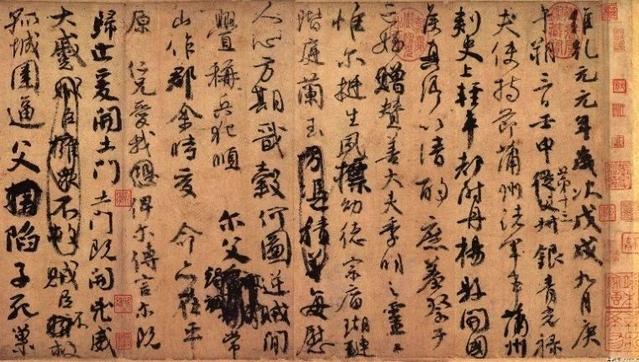 維乾元元年歲次戊戌九月庚
午朔三日壬申第十三叔銀青光祿
夫使持節蒲州諸軍事蒲州
刺史上輕車都尉丹楊縣開國
侯真卿以清酌庶羞祭于
亡姪贈贊善大夫季明之靈曰
惟爾挺生夙標幼德宗廟瑚璉
階庭蘭玉方憑積善每慰
人心方期戩穀何圖逆賊閒
釁稱兵犯順爾父竭誠常
山作郡余時受命亦在平
原仁兄愛我俾爾傳言爾既
歸止爰開土門土門既開凶威
大蹙賊臣擁衆不救賊臣不救
孤城圍逼父陷子死巢